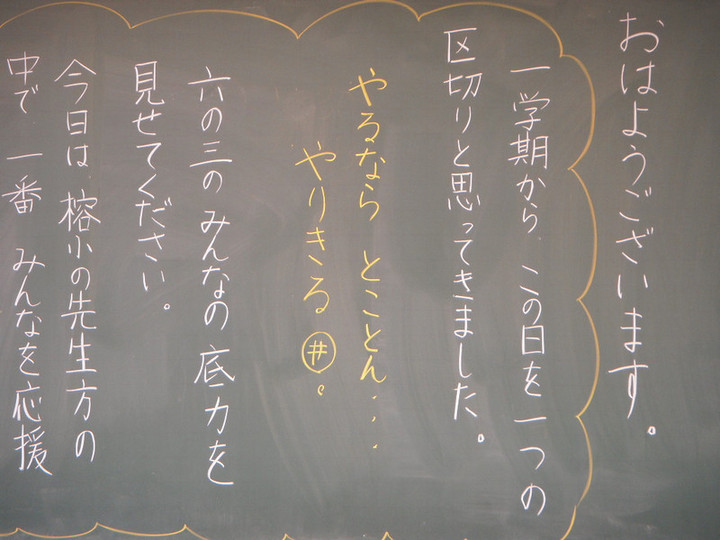 おはようございます。
一学期から この日を一つの
区切りと思ってきました。
やるなら とことん・・・
やりきる ㊉。
六の三の みんなの 底力を
見せてください。
今日は 榕小の先生方の
中で 一番 みんなを応援